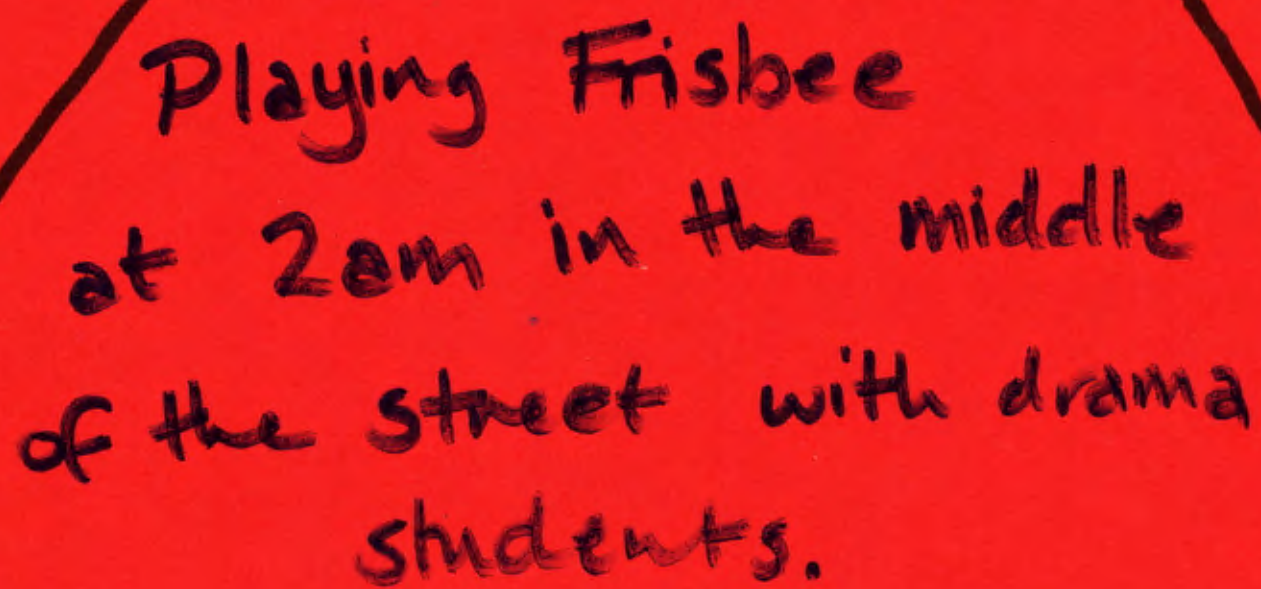 Playing Frisbee
at 2am in the middle
of the street with drama
students.